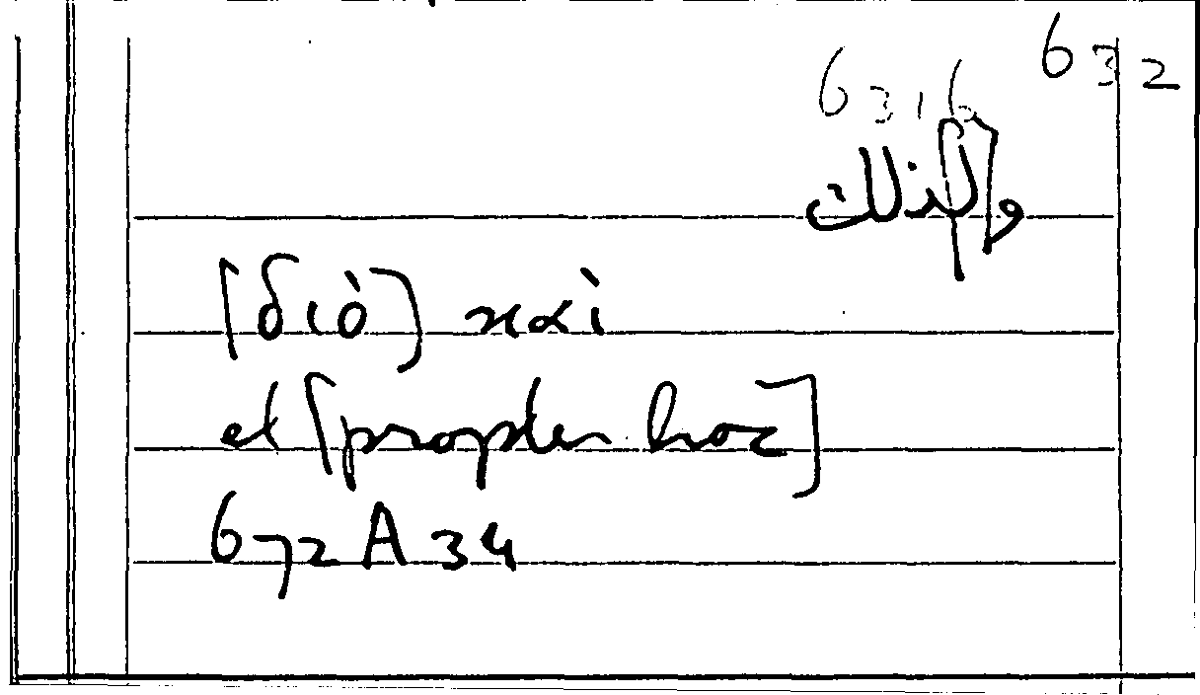 632
6316
و[ل]ذلك
[διὸ] καὶ
et [propter hoc]
672 A 34